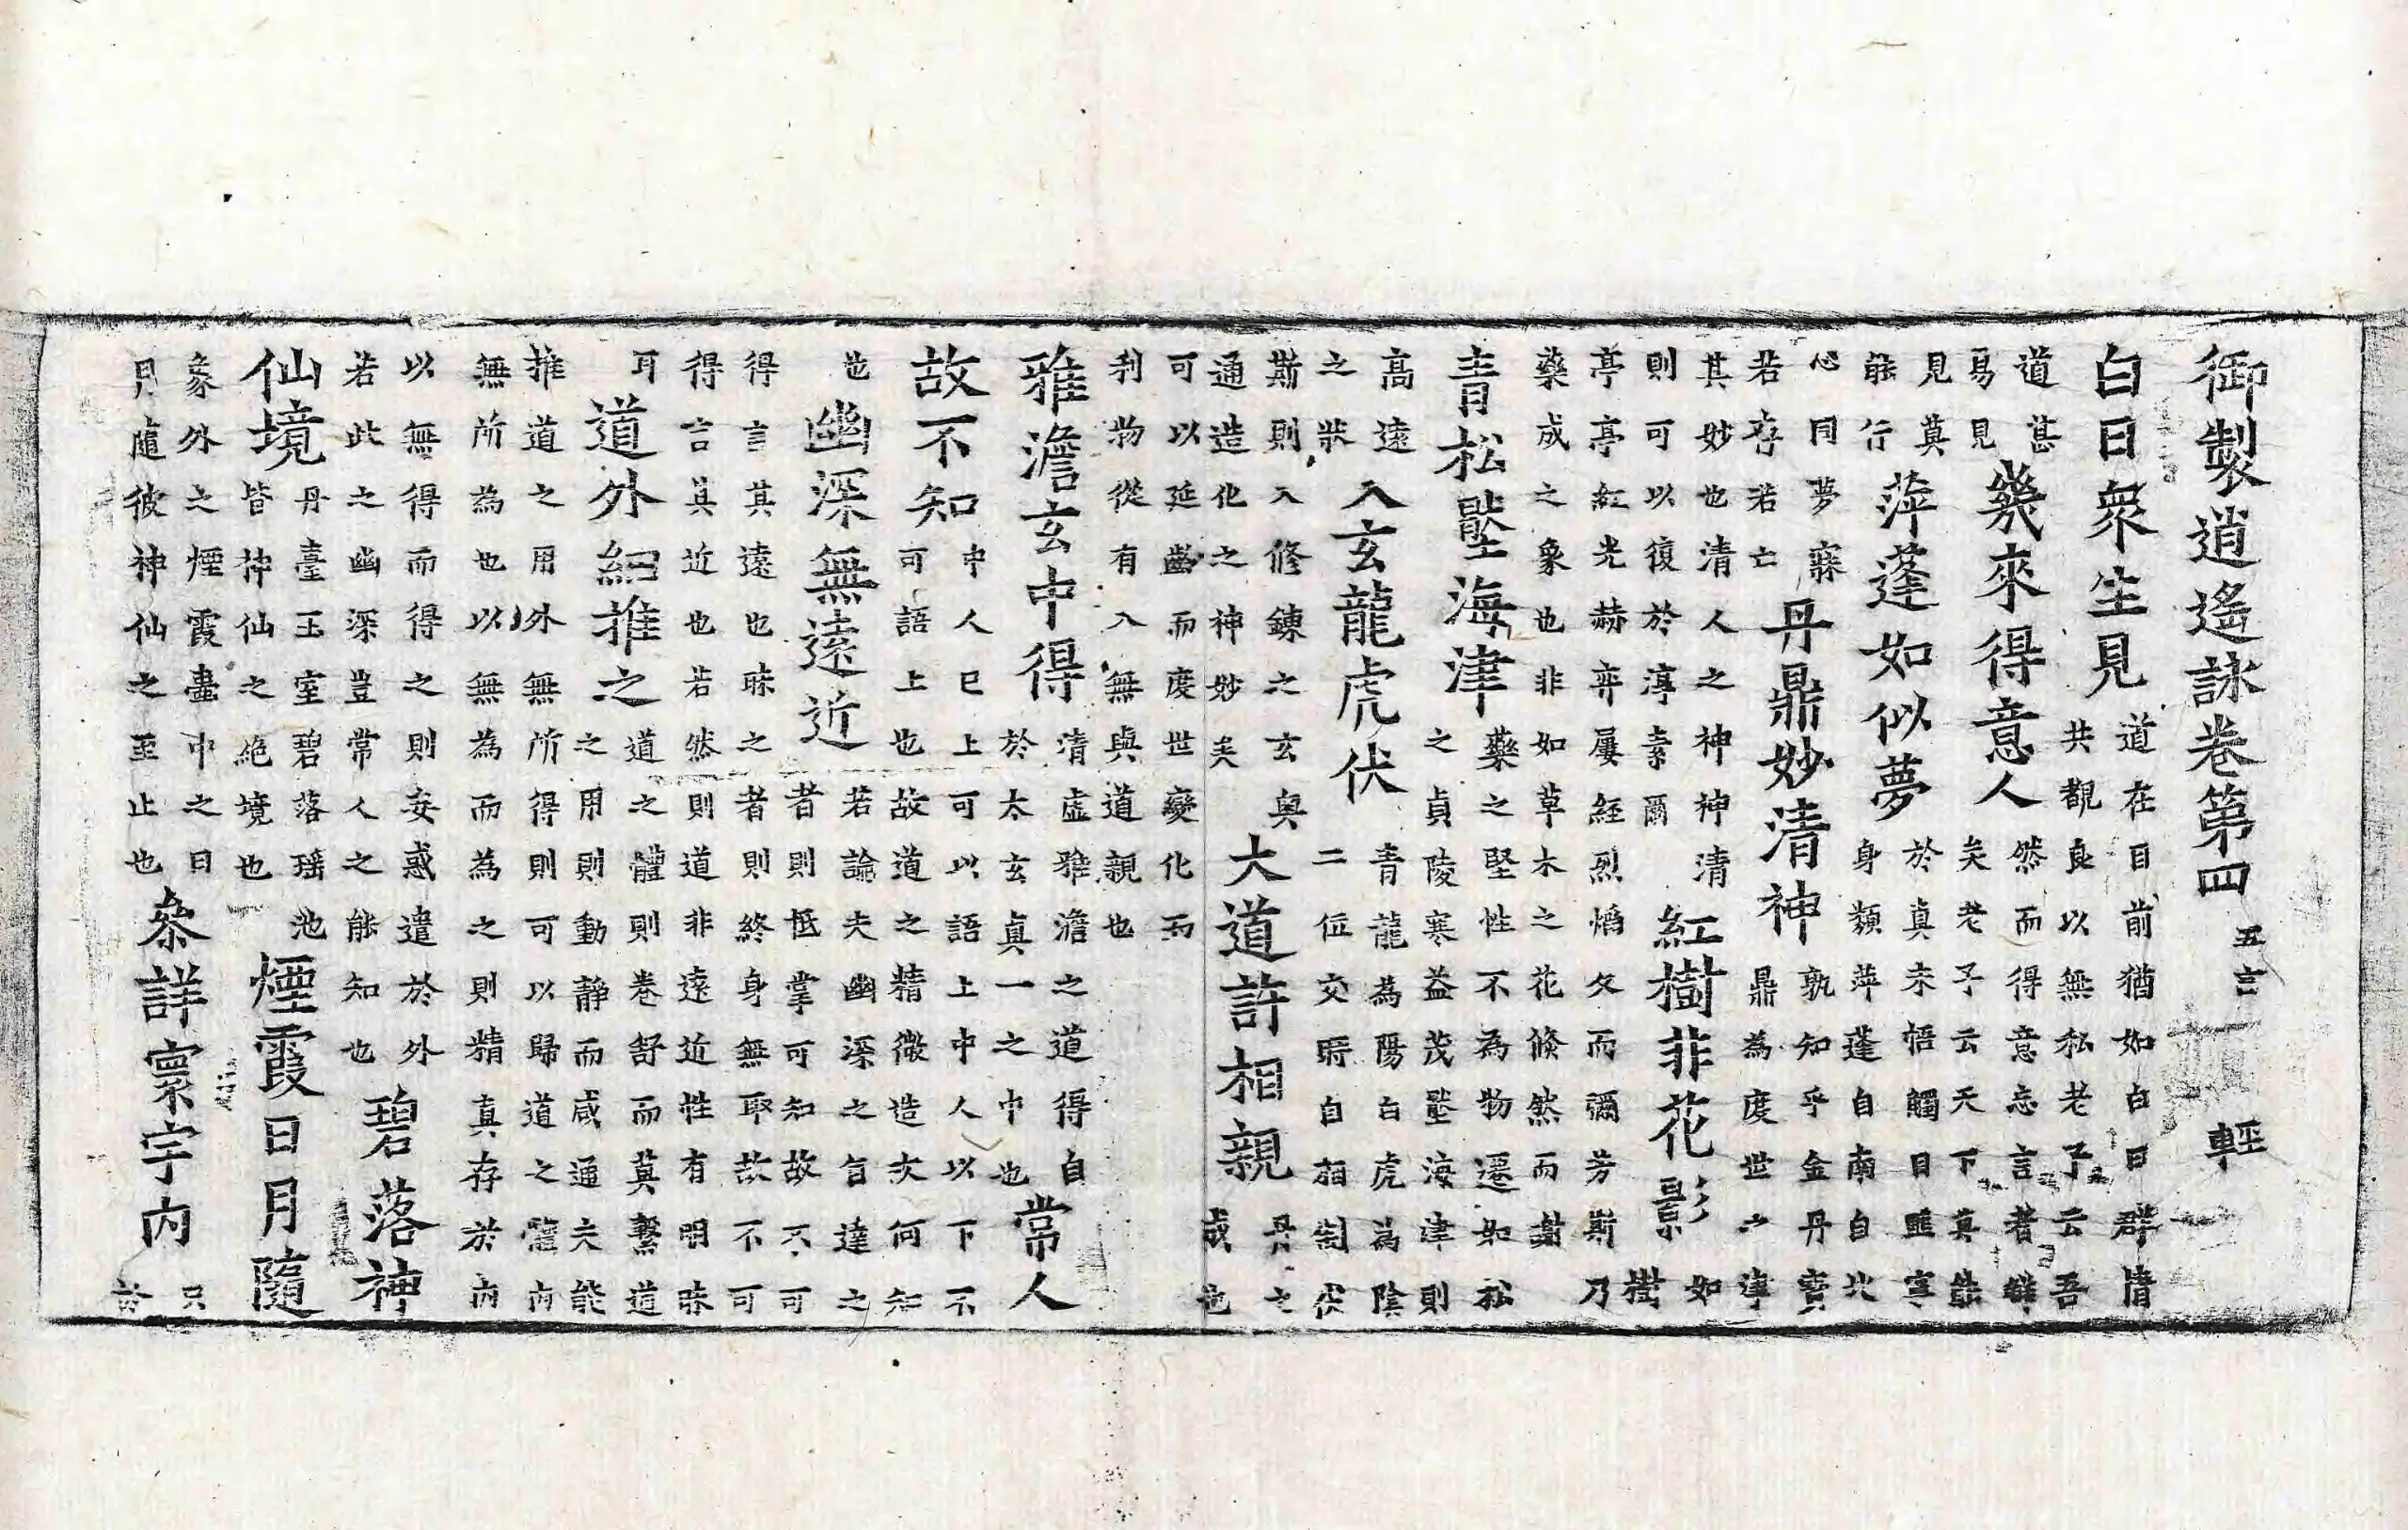 御製逍遙詠卷第四 五言 輕
白日衆生見 道在目前猶如白日群情
共覩良以無私老子云吾
道甚
易見
幾來得意人 然而得意忘言者雖
矣老子云天下莫能
見莫
能行
萍蓬如似夢 於真未悟觸目匪寧
身類萍蓬自南自北
心同夢寐
若存若亡
丹鼎妙清神 孰知乎金丹寶
鼎為度世之津
其妙也清人之神神清
則可以復於淳素爾
紅樹非花影 如
樹
亭亭紅光赫奕屢經烈爥久而彌芳斯乃
藥成之象也非如草木之花倏然而謝
青松壂海津 藥之堅性不為物遷如松
之貞陵寒益茂壂海津則
高遠
之狀
入玄龍虎伏 青龍為陽白虎為陰
二位交時自相制伏
斯則入修鍊之玄奥
通造化之神妙矣
大道許相親 丹之
成也
可以延齡而度世變化而
利物從有入無與道親也
雅澹玄中得 清虚雅澹之道得自
於太玄真一之中也
常人
故不知 中人已上可以語上中人以下不
可語上也故道之精微造次何知
也
幽深無遠近 若論夫幽深之旨達之
者則抵掌可知故不可
得言其遠也昧之者則終身無取故不可
得言其近也若然則道非遠近性有明昧
耳
道外細推之 道之體則卷舒而莫繫道
之用則動静而咸通夫能
推道之用外無所得則可以歸道之龍内
無所為也以無為而為之則精真存於内
以無得而得之則妄惑遣於外
若此之幽深豈常人之能知也
碧落神
仙境 丹臺玉室碧落瑶池
皆神仙之絶境也
煙霞日月隨
象外之煙霞壷中之日
月隨彼神仙之至止也
叅詳寰宇内 只